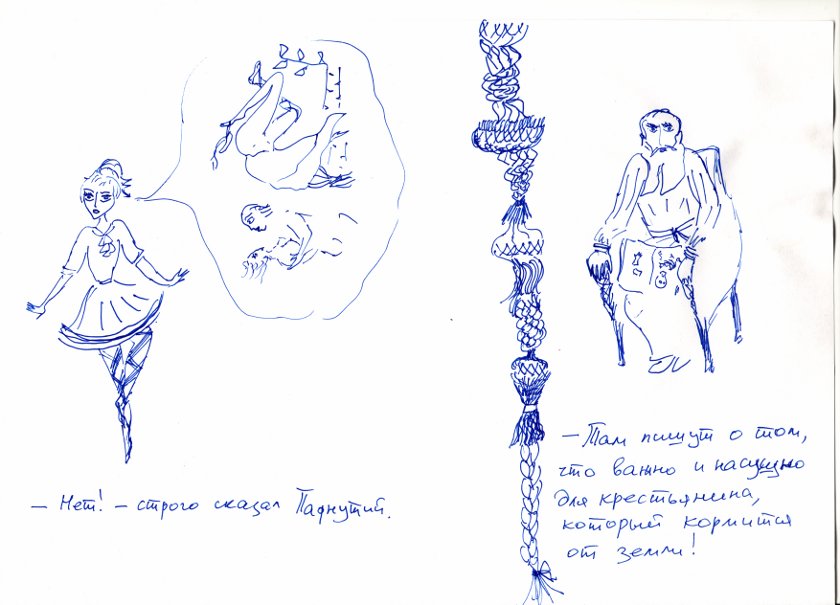 — Нет! — строго сказал Пафнутий.
— Там пишут о том,
что важно и насущно
для крестьянина,
который кормится
от земли!